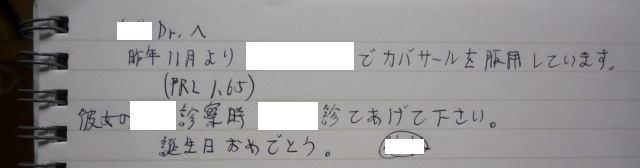 Dr. へ
昨年11月より でカバサールを服用しています。
(PRL 1.65)
彼女の 診察時 診てあげて下さい。
誕生日おめでとう。